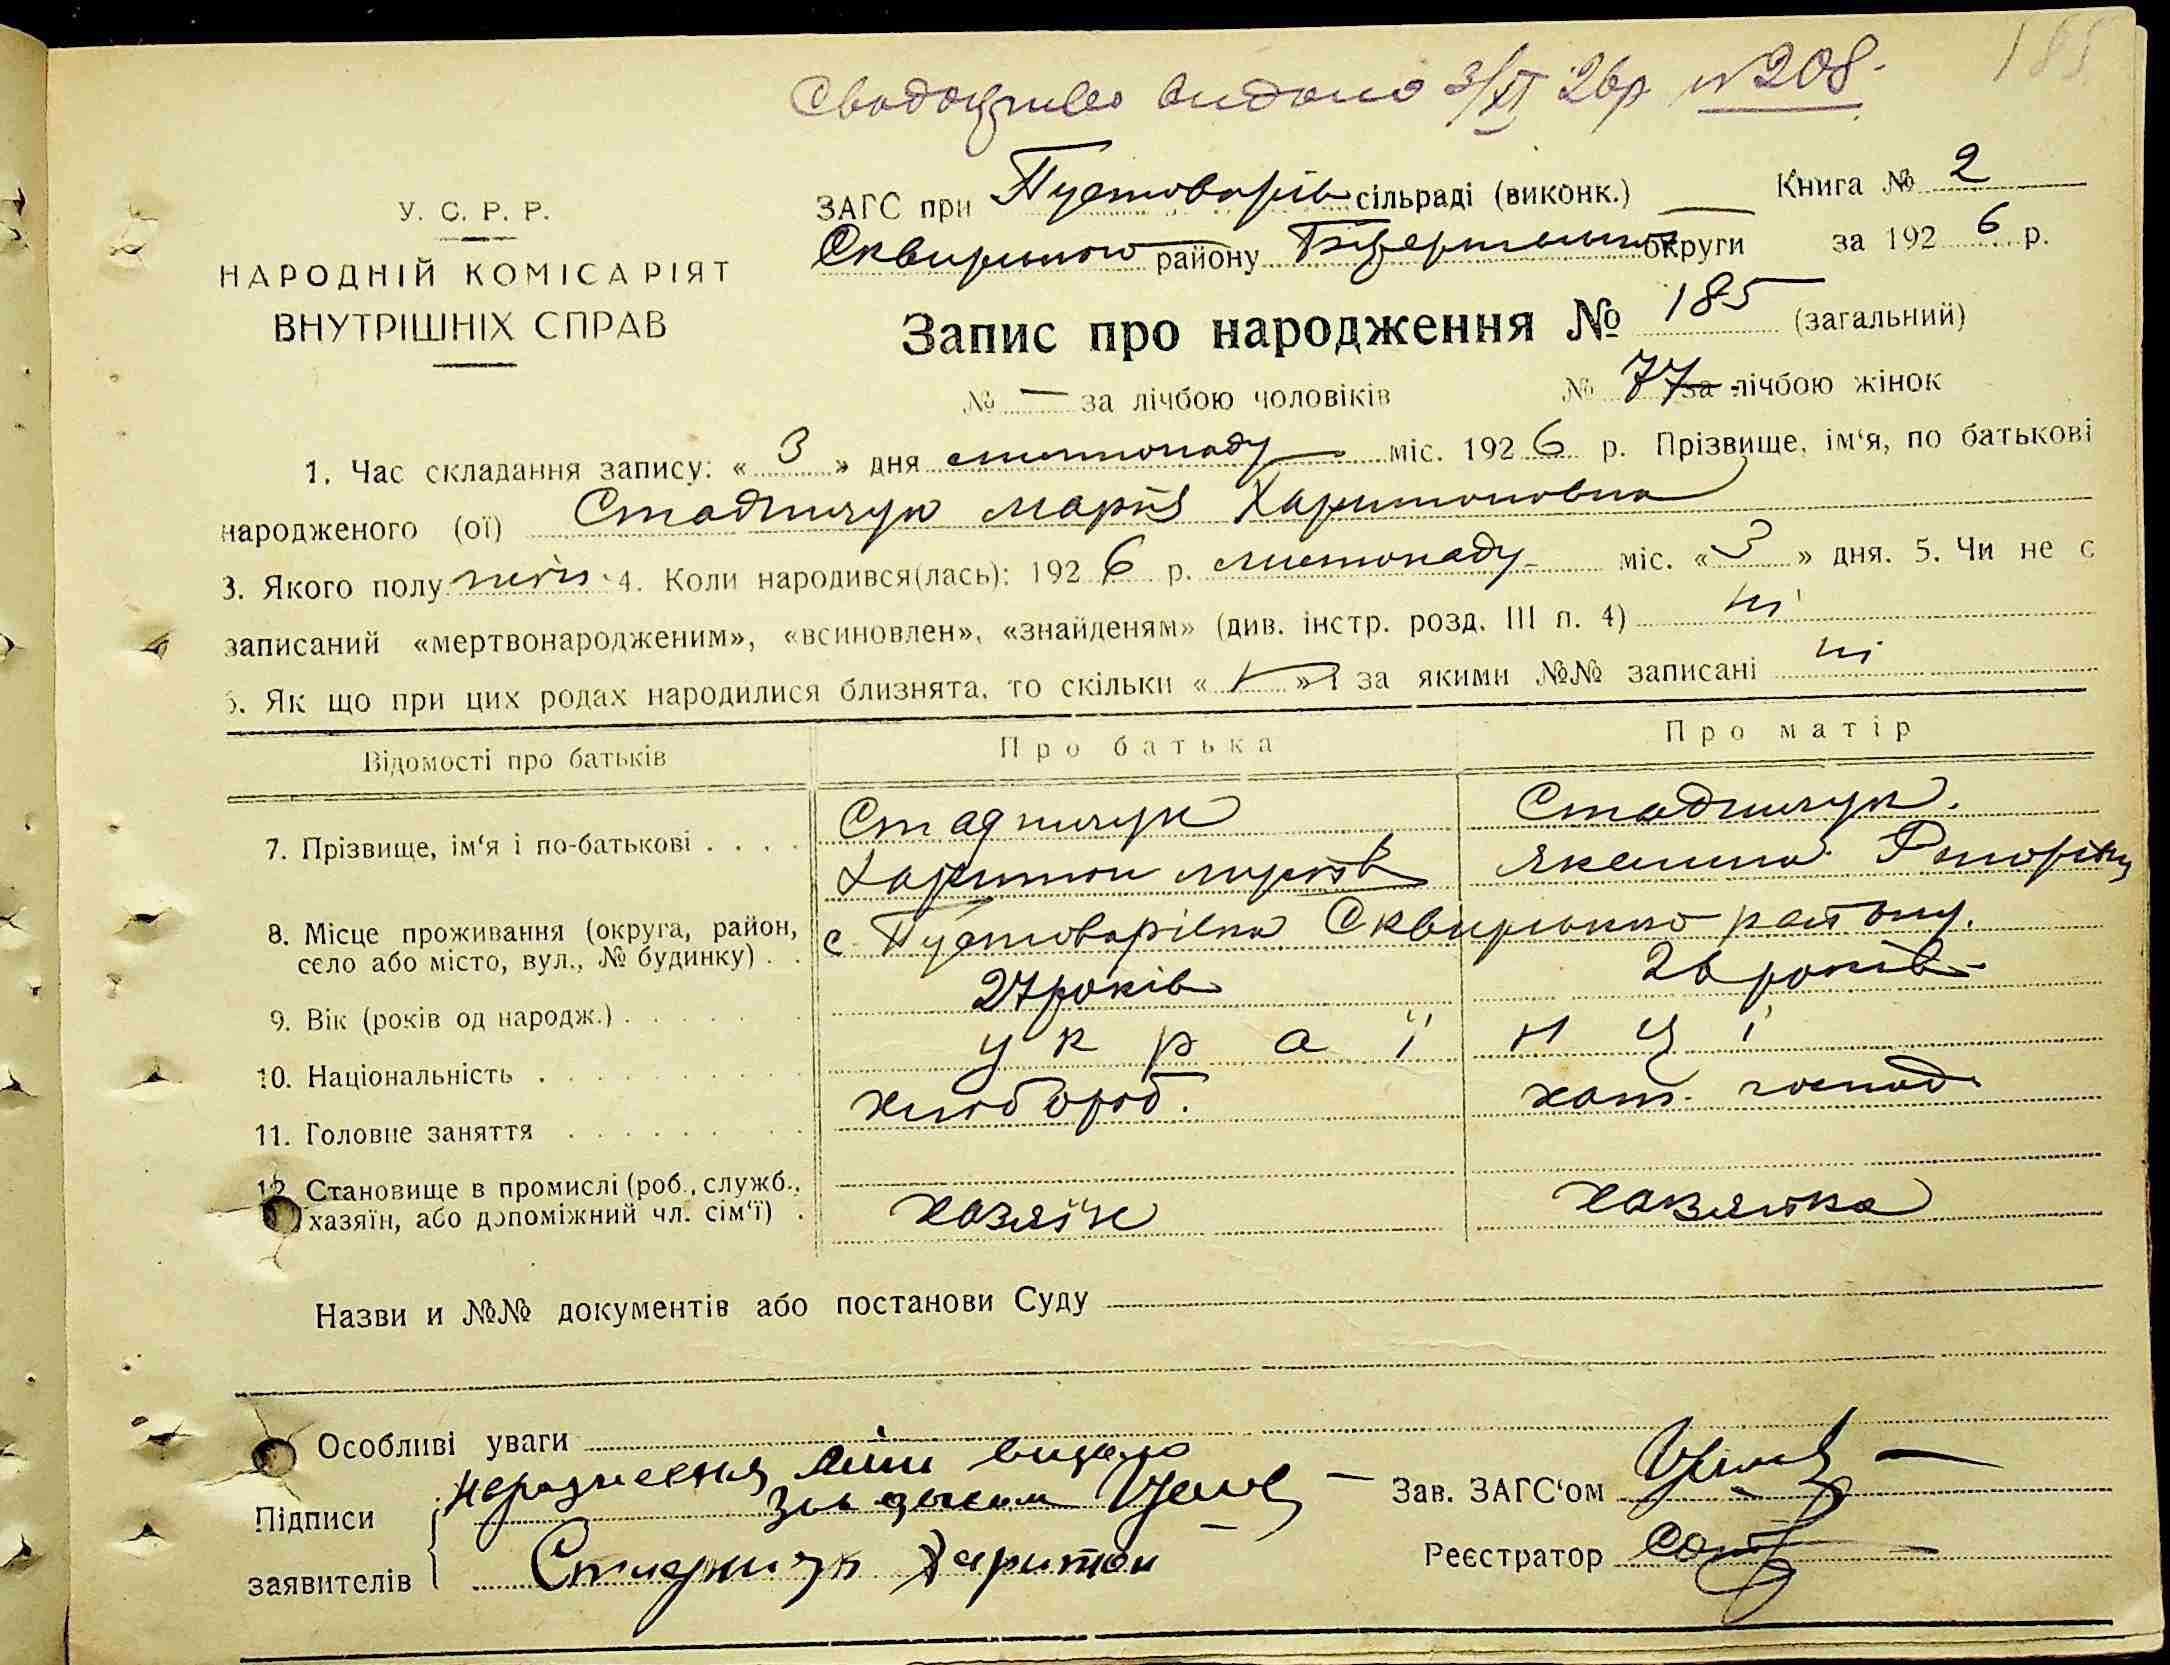 Свидоцтво видано 3/XI 26р №208.
185
У. С. Р. Р.
НАРОДНІЙ КОМІСАРІЯТ
ВНУТРІШНІХ СПРАВ
ЗАГС при Пустоварів сільраді (виконк.) — Книга № 2
Сквирького району Білоцерківської округи за 1926 р.
Запис про народження № 185 (загальний)
№ — за лічбою чоловіків № 77 за лічбою жінок
1. Час складання запису: « 3 » дня листопаду міс. 1926 р. Прізвище, ім‘я, по батькові
народженого (ої) Стадничук Марія Харитоновна
3. Якого полу жін. 4. Коли народився(лась): 1926 р. листопаду міс. « 3 » дня. 5. Чи не є
записаний «мертвонародженим», «всиновлен», «знайденям» (див. інстр. розд. III п. 4) ні
6. Як що при цих родах народилися близнята, то скільки « » і за якими №№ записані ні
Відомості про батьків Про батька Про матір
7. Прізвище, ім‘я і по-батькові . . . . Стадничук Стадничук.
Харитон
8. Місце проживання (округа, район, с. Пустоварівка Сквирького району.
село або місто, вул., № будинку) . .
9. Вік (років од народж.) . . . . . 27 років 26 років
10. Національність . . . . . . . українці
11. Головне заняття . . . . . . . хлібороб. хат. господ.
12. Становище в промислі (роб., служб.,
хазяїн, або допоміжний чл. сім‘ї) . хазяїн хазяйка
Назви и №№ документів або постанови Суду
Особливі уваги
Підписи
Зав. ЗАГС‘ом
заявителів Стадничук Харитон
Реєстратор